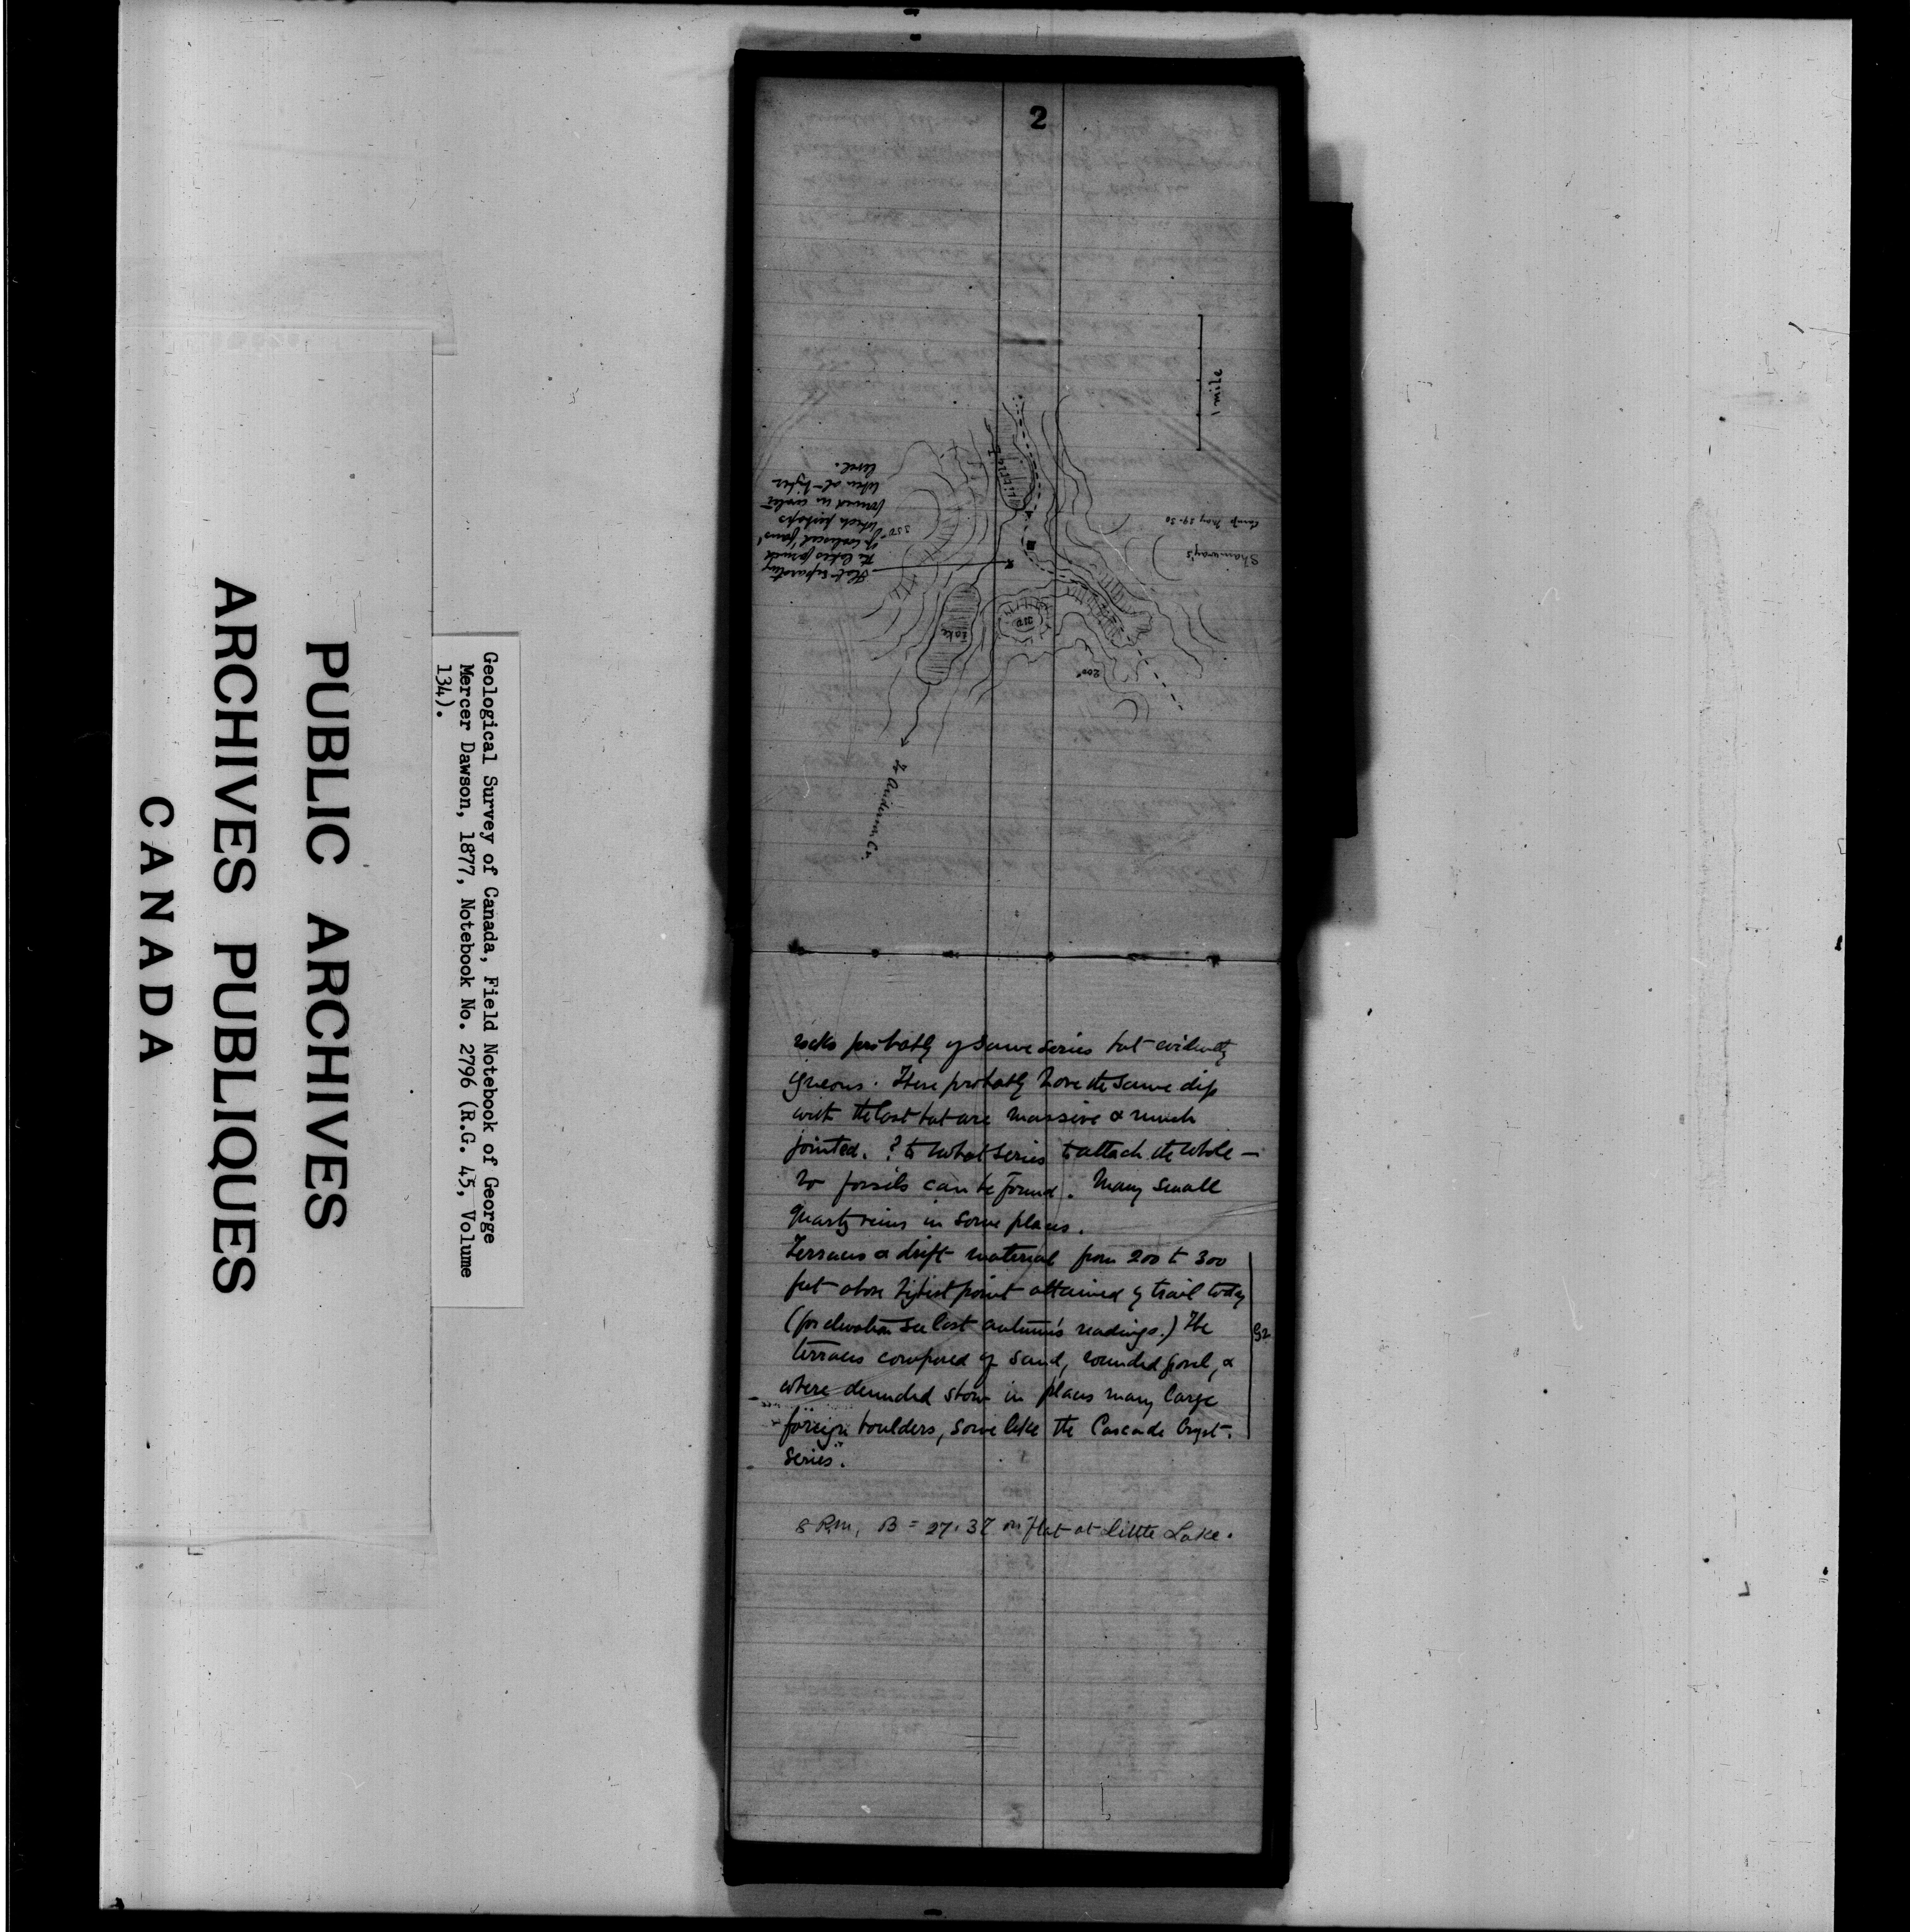 PUBLIC ARCHIVES
ARCHIVES PUBLIQUES
CANADA
Geological Survey of Canada, Field Notebook of George
Mercer Dawson, 1877, Notebook No. 2796 (R.G. 45, Volume
134).
2
1 mile
Little L
Camp May 29-30
Shamway's
Flat separating
the lakes formed
of coalesced 'fans'
which perhaps
formed in water
when at higher
level.
350
Lake
200
to Anderson Cr.
rocks probably of same series but evidently
igneous. These probably have the same dip
with the last but are massive & much
jointed. ? to what series to attach the whole —
no fossils can be found. Many small
quartz veins in some places.
Terraces & drift material from 200 to 300
feet above highest point attained by trail today
(for elevation see last autumn's readings.) The
terraces composed of sand, rounded gravel, &
where denuded show in places many large
foreign boulders, some like the Cascade Cryst.
series.
8 P.M. B = 27.37 on flat at little Lake.